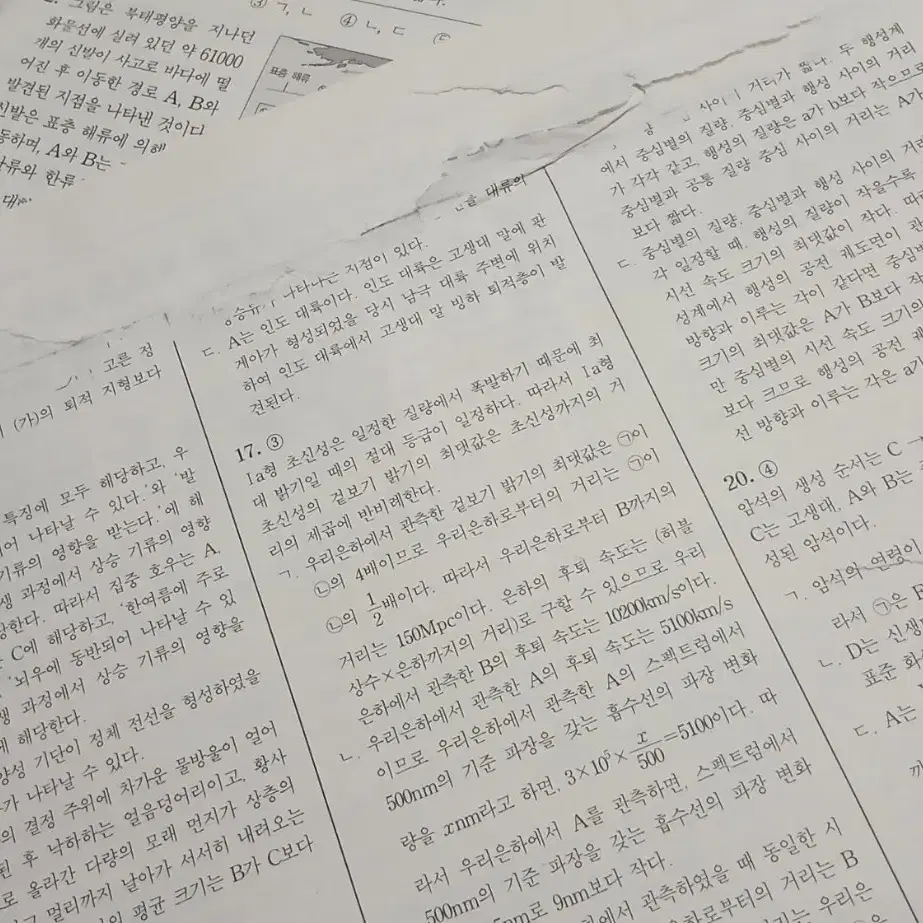 ③ ㄱ, ㄴ ④ ㄴ, ㄷ
그림은 북태평양을 지나던
화물선에 실려 있던 약 61000
개의 신발이 사고로 바다에 떨
어진 후 이동한 경로 A, B와
발견된 지점을 나타낸 것이다
신발은 표층 해류에 의해
동하며, A와 B는
난류와 한류
표층 해류
고른 정
(가)의 퇴적 지형보다
특징에 모두 해당하고, 우
어 나타날 수 있다.'와 '발
기류의 영향을 받는다.'에 해
생 과정에서 상승 기류의 영향
당한다. 따라서 집중 호우는 A,
C에 해당하고, '한여름에 주로
'뇌우에 동반되어 나타날 수 있
생 과정에서 상승 기류의 영향을
에 해당한다.
양성 기단이 정체 전선을 형성하였을
가 나타날 수 있다.
의 결정 주위에 차가운 물방울이 얼어
된 후 낙하하는 얼음덩어리이고, 황사
로 올라간 다량의 모래 먼지가 상층의
고 멀리까지 날아가 서서히 내려오는
의 평균 크기는 B가 C보다
대류의
나타나는 지점이 있다.
ㄷ. A는 인도 대륙이다. 인도 대륙은 고생대 말에 판
게아가 형성되었을 당시 남극 대륙 주변에 위치
하여 인도 대륙에서 고생대 말 빙하 퇴적층이 발
견된다.
17. ③
Ia형 초신성은 일정한 질량에서 폭발하기 때문에 최
대 밝기일 때의 절대 등급이 일정하다. 따라서 Ia형
초신성의 겉보기 밝기의 최댓값은 초신성까지의 거
리의 제곱에 반비례한다.
ㄱ. 우리은하에서 관측한 겉보기 밝기의 최댓값은 ㉠이
㉡의 4배이므로 우리은하로부터의 거리는 ㉠이
㉡의 1/2배이다. 따라서 우리은하로부터 B까지의
거리는 150Mpc이다. 은하의 후퇴 속도는 (허블
상수×은하까지의 거리)로 구할 수 있으므로 우리
은하에서 관측한 B의 후퇴 속도는 10200km/s이다.
ㄴ. 우리은하에서 관측한 A의 후퇴 속도는 5100km/s
이므로 우리은하에서 관측한 A의 스펙트럼에서
500nm의 기준 파장을 갖는 흡수선의 파장 변화
량을 x nm라고 하면, 3×10⁵×x/500=5100이다. 따
라서 우리은하에서 A를 관측하면, 스펙트럼에서
500nm의 기준 파장을 갖는 흡수선의 파장 변화
nm로 9nm보다 작다.
에서 관측하였을 때 동일한 시
하로부터의 거리는 B
우리은
사이 거리가 짧다. 두 행성계
에서 중심별의 질량, 중심별과 행성 사이의 거리
가 각각 같고, 행성의 질량은 a가 b보다 작으므로
중심별과 공통 질량 중심 사이의 거리는 A가
보다 짧다.
ㄷ. 중심별의 질량, 중심별과 행성 사이의 거리
각 일정할 때, 행성의 질량이 작을수록
시선 속도 크기의 최댓값이 작다. 따라
성계에서 행성의 공전 궤도면이 관
방향과 이루는 각이 같다면 중심별
크기의 최댓값은 A가 B보다 작
만 중심별의 시선 속도 크기의
보다 크므로 행성의 공전 궤
선 방향과 이루는 각은 a가
20. ④
암석의 생성 순서는 C
C는 고생대, A와 B는
성된 암석이다.
ㄱ. 암석의 연령이
라서 ㉠은
ㄴ. D는 신생
표준 화
ㄷ. A는